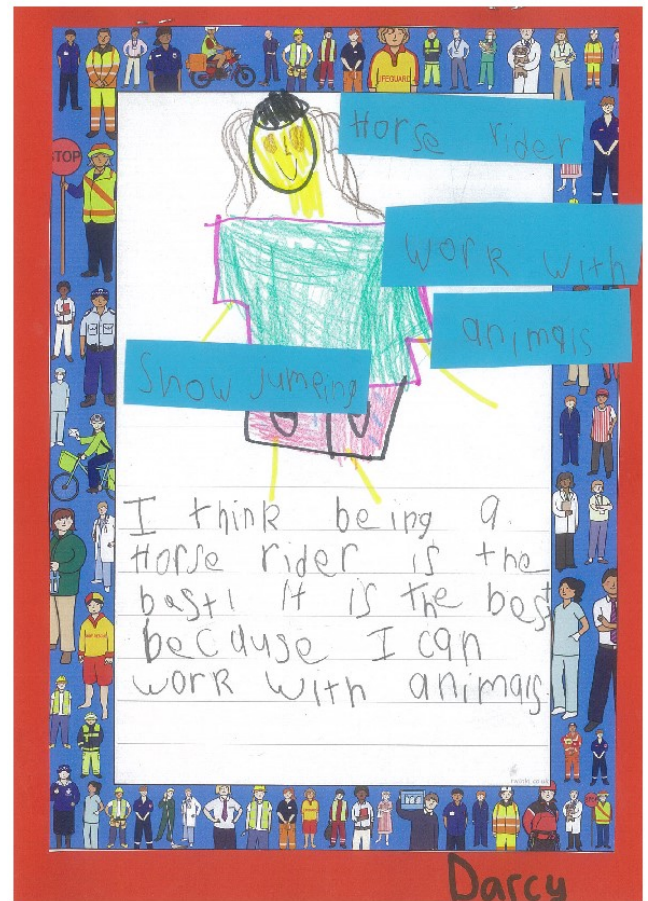 STOP
LIFEGUARD
Horse rider
work with
animals
Show jumping
I think being a
Horse rider is the
bast! It is the best
because I can
work with animals.
Darcy